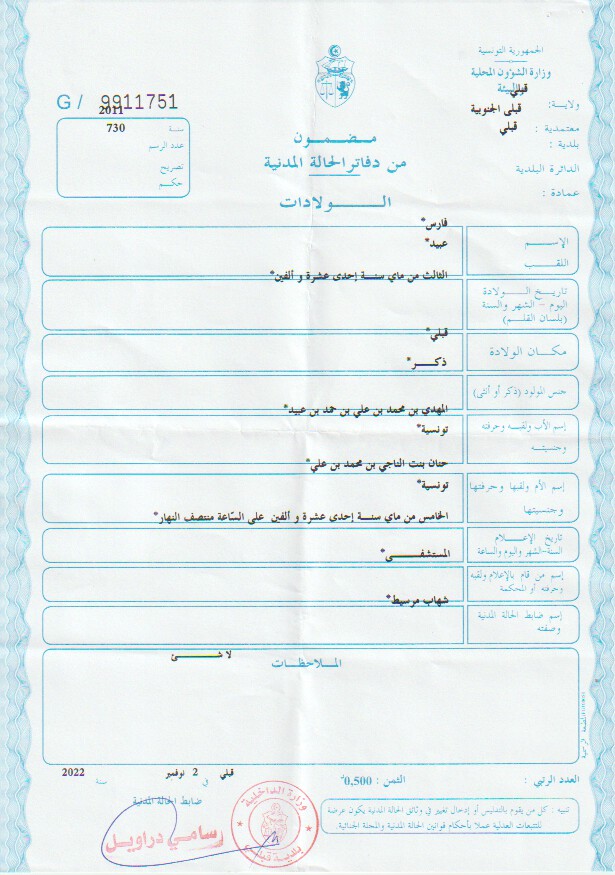 الجمهورية التونسية
وزارة الشؤون المحلية
والبيئة
ولاية: قبلي
معتمدية : قبلي الجنوبية
بلدية : قبلي
الدائرة البلدية
عمادة :
G / 9911751
سنة 2011
عدد الرسم 730
تصريح
حكم
مضمون
من دفاتر الحالة المدنية
الولادات
الإسم فارس*
اللقب عبيد*
تاريخ الولادة الثالث من ماي سنة إحدى عشرة و ألفين*
اليوم - الشهر والسنة
(بلسان القلم)
مكان الولادة قبلي*
جنس المولود (ذكر أو أنثى) ذكر*
إسم الأب ولقبه وحرفته المهدي بن محمد بن علي بن حمد بن عبيد*
وجنسيته تونسية*
إسم الأم ولقبها وحرفتها حنان بنت الناجي بن محمد بن علي*
وجنسيتها تونسية*
تاريخ الإعلام الخامس من ماي سنة إحدى عشرة و ألفين على السّاعة منتصف النهار*
السنة-الشهر واليوم والساعة
إسم من قام بالإعلام ولقبه المستشفى*
وحرفته أو المحكمة
إسم ضابط الحالة المدنية شهاب مرسيط*
وصفته
الملاحظات
لا شئ
المطبعة الرسمية
العدد الرتبي :
الثمن : 0,500د
قبلي في 2 نوفمبر سنة 2022
ضابط الحالة المدنية
تنبيه : كل من يقوم بالتدليس أو إدخال تغيير في وثائق الحالة المدنية يكون عرضة
للتتبعات العدلية عملا بأحكام قوانين الحالة المدنية والمجلة الجنائية.
وزارة الداخلية
بلدية قبلي
رسامي دراويل